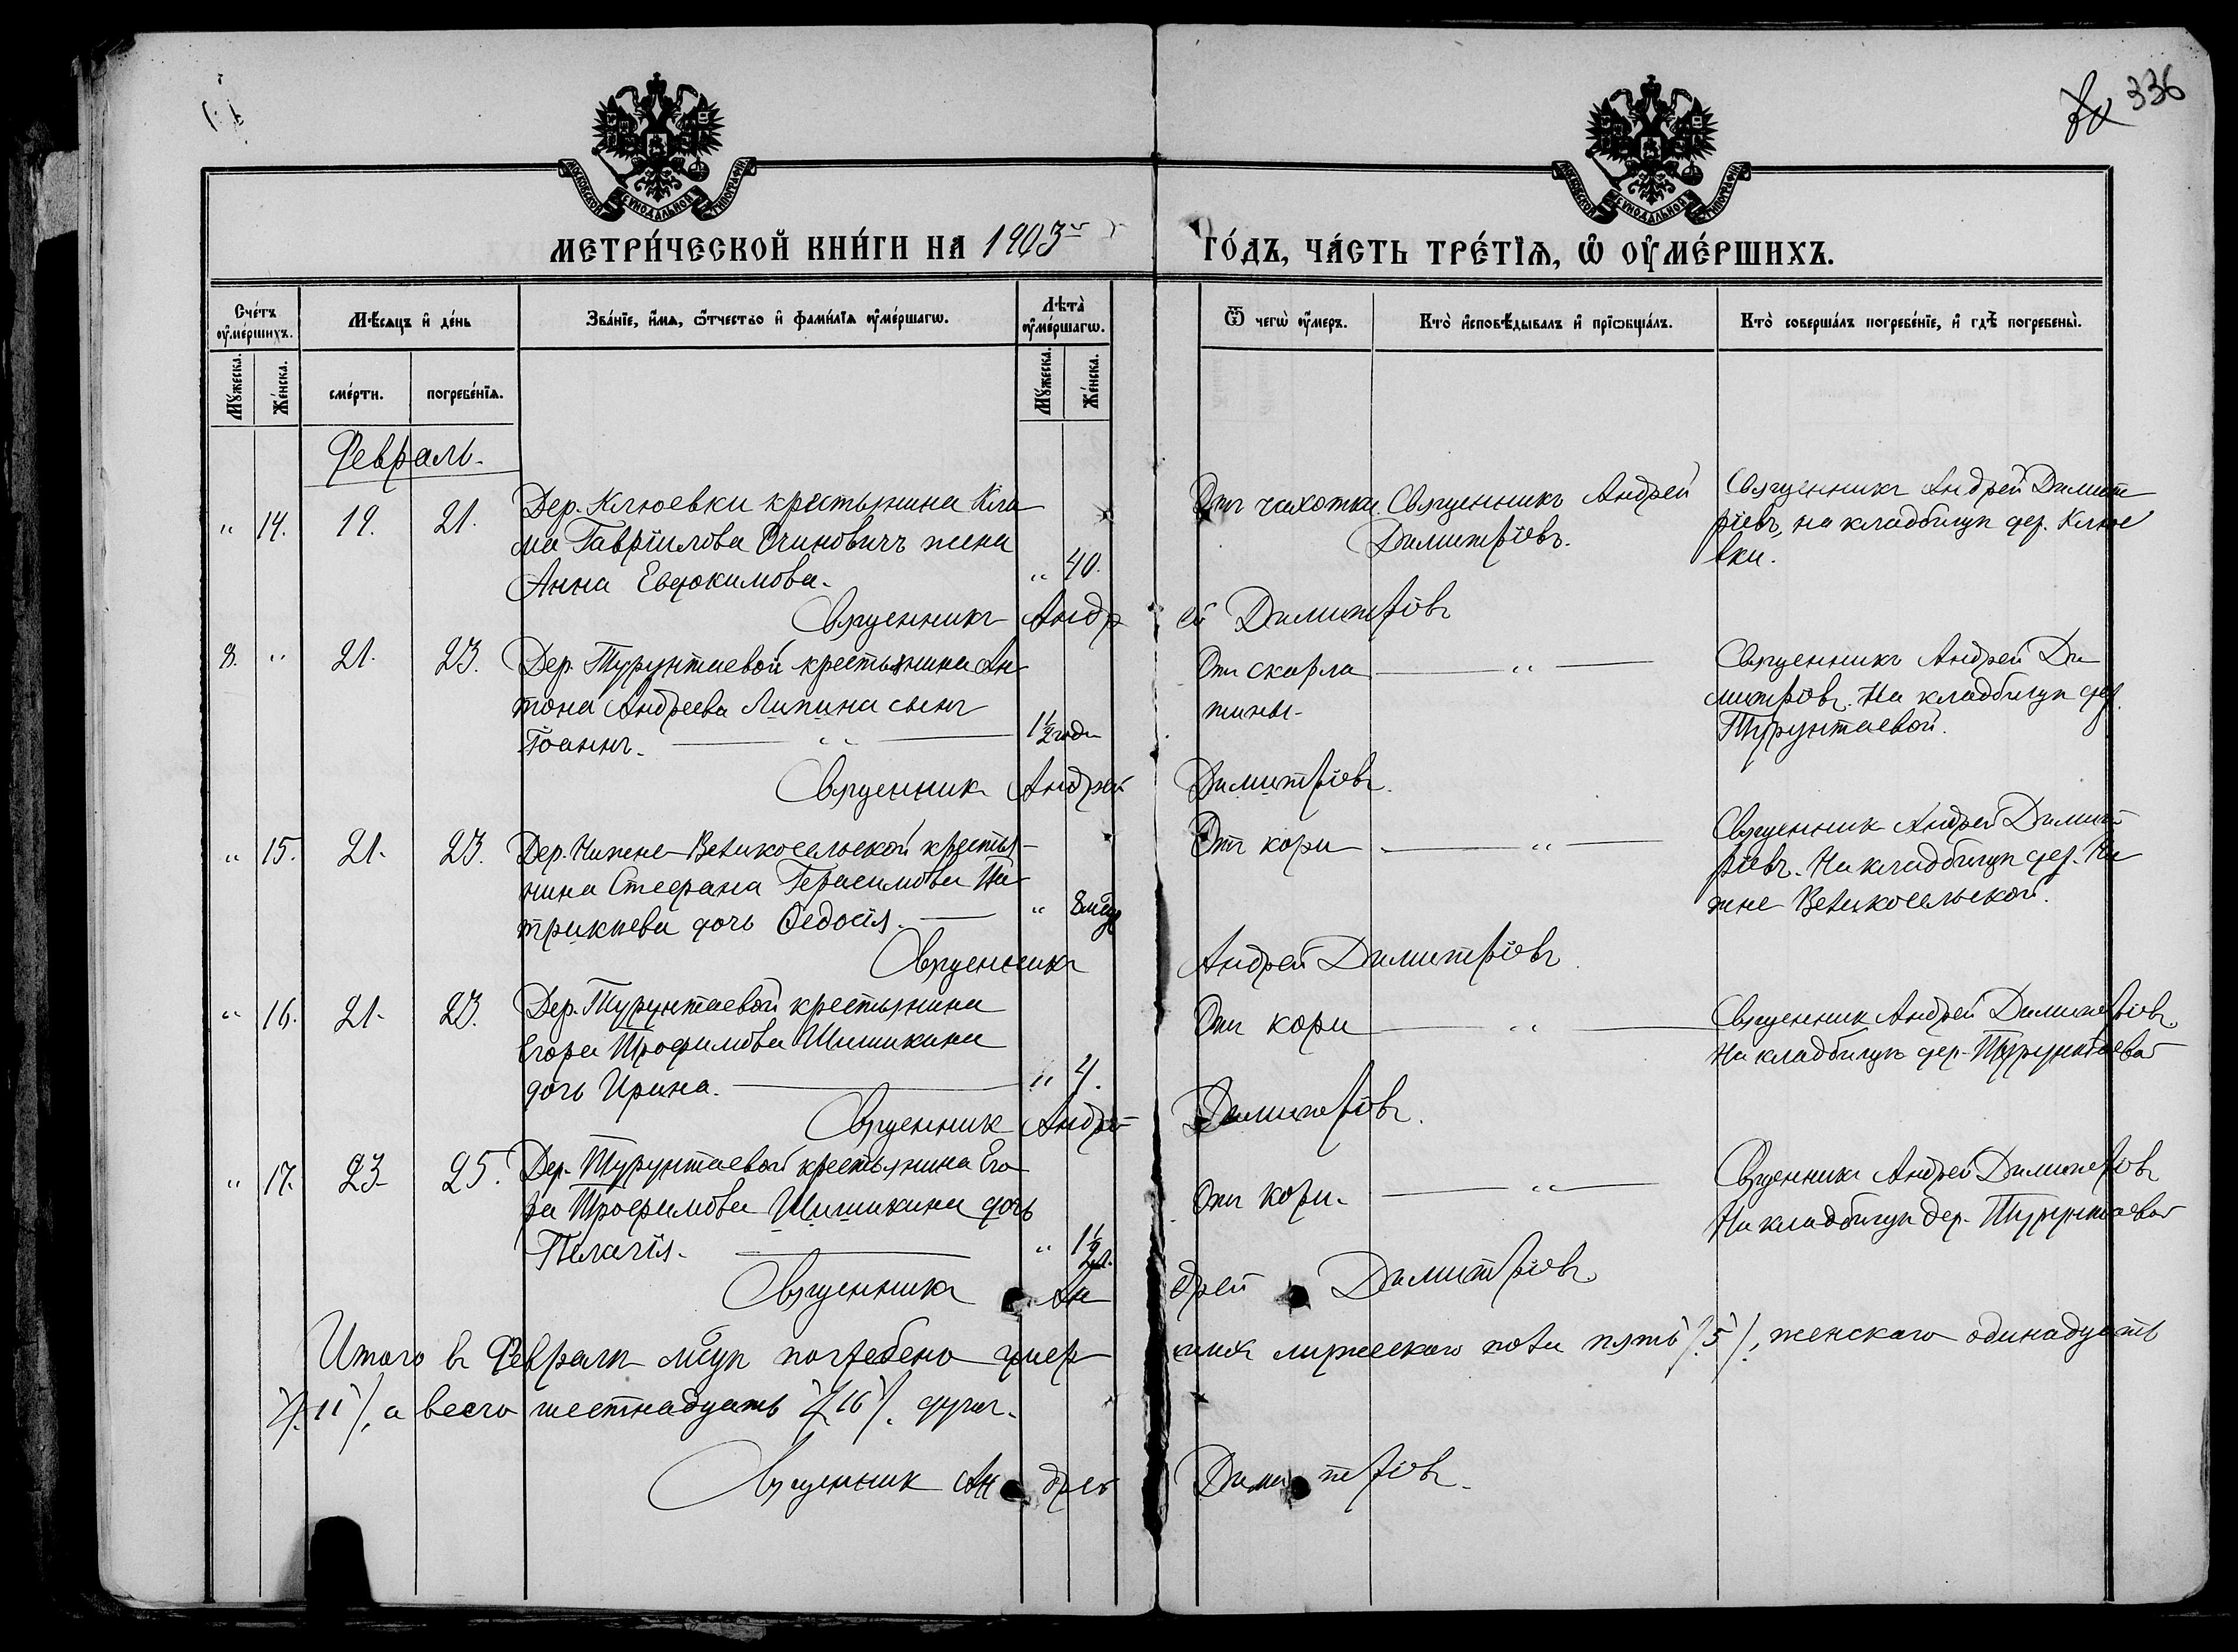 336
МОСКОВСКОЙ СѴНОДАЛЬНОЙ ТИПОГРАФІИ
МОСКОВСКОЙ СѴНОДАЛЬНОЙ ТИПОГРАФІИ
МЕТРИ́ЧЕСКОЙ КНИ́ГИ НА 1903 й
ГО́ДЪ, ЧА́СТЬ ТРЕ́ТІѦ, Ѡ ОУМЕ́РШИХЪ.
Сче́тъ оуме́ршихъ.
Мѣсяцъ и де́нь
Зва́ніе, имя, о́тчество и фами́лія оуме́ршагѡ.
Лѣта̀ оуме́ршагѡ.
Ѿ чегѡ̀ оу́меръ.
Кто̀ исповѣ́дывалъ и прїѡбща́лъ.
Кто̀ соверша́лъ погребе́ніе, и гдѣ̀ погребены̀.
Мужеска.
Же́нска.
сме́рти.
погребе́нїя.
Мужеска.
Же́нска.
Февраль.
„ 14. 19. 21.
Дер. Клюевки крестьянина Кли-
ма Гавріилова Очиновичъ жена
Анна Евдокимова. „ 40.
Отъ чахотки
Священникъ Андрей
Димитріевъ.
Священникъ Андрей Димит
ріевъ, на кладбищѣ дер. Клюе
вки.
Священникъ Андрей Димитріевъ
8. „ 21. 23.
Дер. Турунтаевой крестьянина Ан-
тона Андреева Липина сынъ
Іоаннъ. — „ — 1½ года
Отъ скарла
тины. — „ —
Священникъ Андрей Ди
митріевъ. На кладбищѣ дер.
Турунтаевой.
Священникъ Андрей Димитріевъ.
„ 15. 21. 23.
Дер. Нижне-Великосельской крестья-
нина Стефана Герасимова Па-
трикѣева дочь Ѳедосія. — „ 8 мѣц
Отъ кори — „ —
Священникъ Андрей Димит
ріевъ. На кладбищѣ дер. Ни
жне Великосельской.
Священникъ Андрей Димитріевъ.
„ 16. 21. 23.
Дер. Турунтаевой крестьянина
Егора Трофимова Шишкина
дочь Ирина. — „ 4.
Отъ кори — „ —
Священникъ Андрей Димитріевъ.
На кладбищѣ дер. Турунтаевой
Священникъ Андрей Димитріевъ.
„ 17. 23. 25.
Дер. Турунтаевой крестьянина Его
ра Трофимова Шишикина дочь
Пелагія. — „ 1½ л.
Отъ кори. — „ —
Священникъ Андрей Димитріевъ
На кладбищѣ дер. Турунтаевой
Священникъ Андрей Димитріевъ.
Итого въ Февралѣ мцѣ погребено умершихъ мужескаго пола пять /.5/., женскаго одинадцать
/.11/., а всего шестнадцать /.16/. душъ.
Священникъ Андрей Димитріевъ.